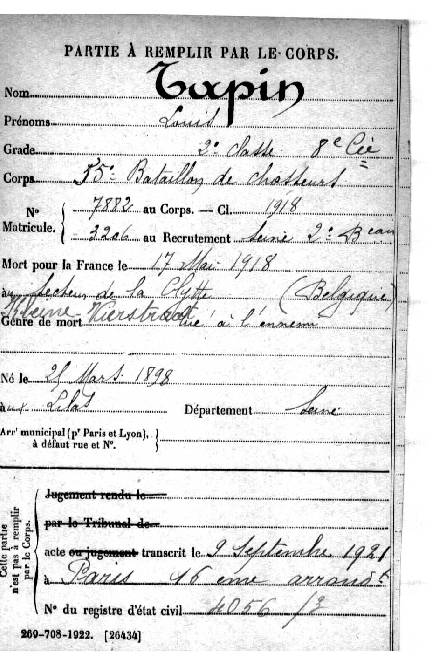 PARTIE À REMPLIR PAR LE CORPS.
Nom Tapin
Prénoms Louis
Grade 2e classe 8e Cie
Corps 55e Bataillon de chasseurs
N° Matricule. { 7882 au Corps. — Cl. 1918
3206 au Recrutement Seine 2e Beau
Mort pour la France le 17 Mai 1918
au secteur de la Clytte (Belgique)
Kleine Vierstraat
Genre de mort tué à l'ennemi
Né le 25 Mars 1898
aux Lilas Département Seine
Arrt municipal (pr Paris et Lyon), à défaut rue et N°.
Cette partie n'est pas à remplir par le Corps.
Jugement rendu le
par le Tribunal de
acte ou jugement transcrit le 9 Septembre 1921
à Paris 16 eme arrondt
N° du registre d'état civil 4056/2
269-708-1922. [26434]